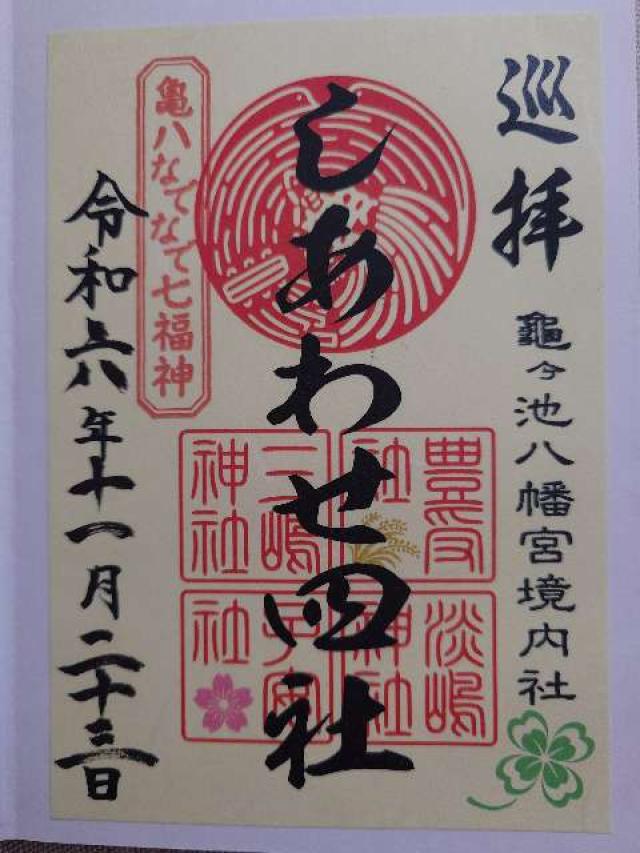 巡拝
龜ヶ池八幡宮境内社
しあわせ四社
豊受社
三嶋神社
淡嶋神社
子安社
亀八なでなで七福神
令和六年十一月二十三日